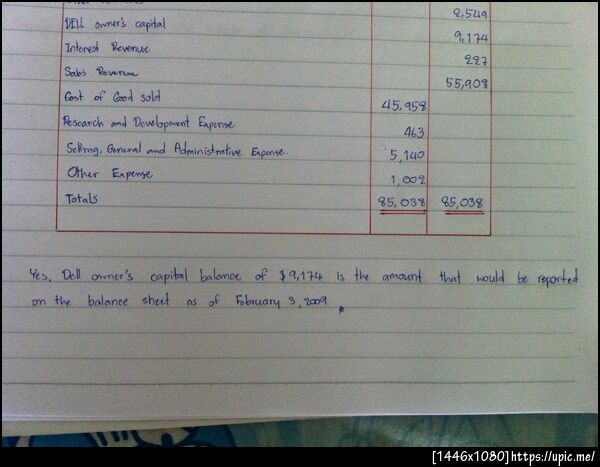 2,549
DELL owner's capital 9,174
Interest Revenue 227
Sales Revenue 55,908
Cost of Good sold 45,958
Research and Development Expense 463
Selling, General and Administrative Expense. 5,140
Other Expense 1,002
Totals 85,038 85,038
Yes, Dell owner's capital balance of $9,174 is the amount that would be reported
on the balance sheet as of February 3, 2009.
[1446x1080]https://upic.me/